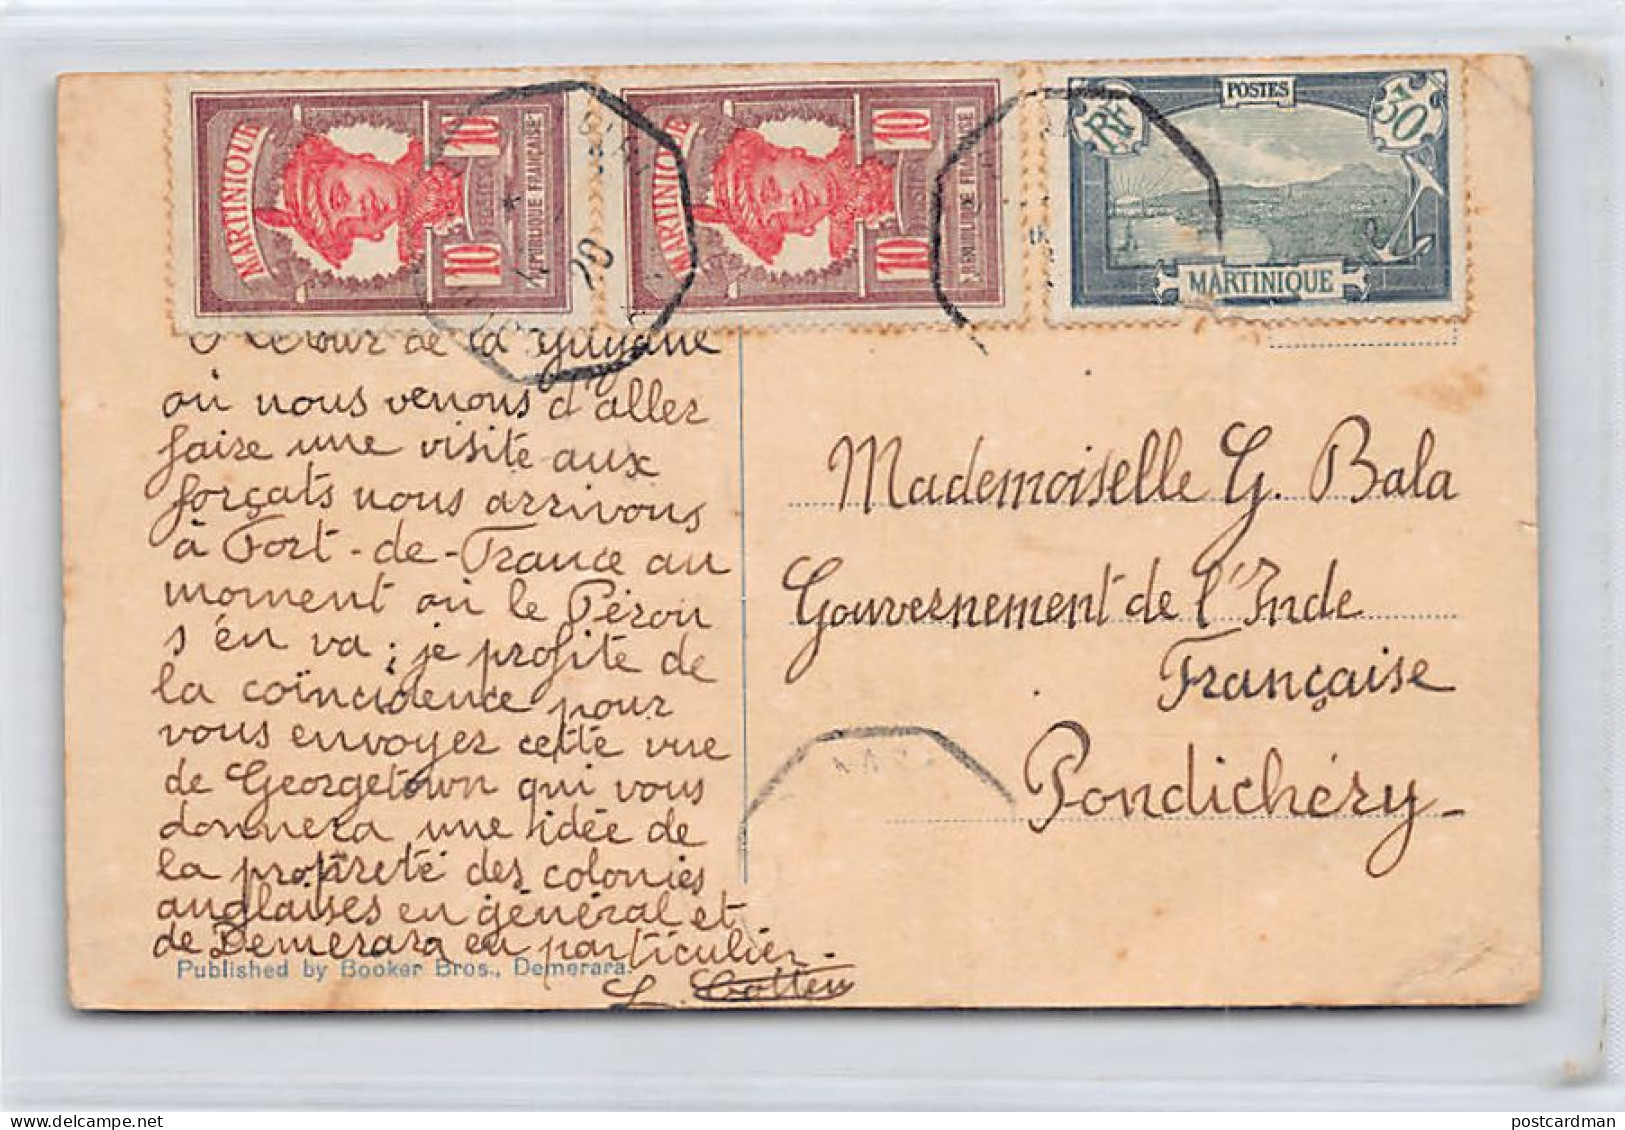 MARTINIQUE
10
10
POSTES
RÉPUBLIQUE FRANÇAISE
MARTINIQUE
10
10
POSTES
RÉPUBLIQUE FRANÇAISE
RF
POSTES
30
MARTINIQUE
20
retour de la Guyane
où nous venons d'aller
faire une visite aux
forçats nous arrivons
à Fort-de-France au
moment où le Pérou
s'en va ; je profite de
la coïncidence pour
vous envoyer cette vue
de Georgetown qui vous
donnera une idée de
la propreté des colonies
anglaises en général et
de Demerara en particulier.
L. Cotten
Published by Booker Bros., Demerara.
Mademoiselle G. Bala
Gouvernement de l'Inde
Française
Pondichéry
postcardman